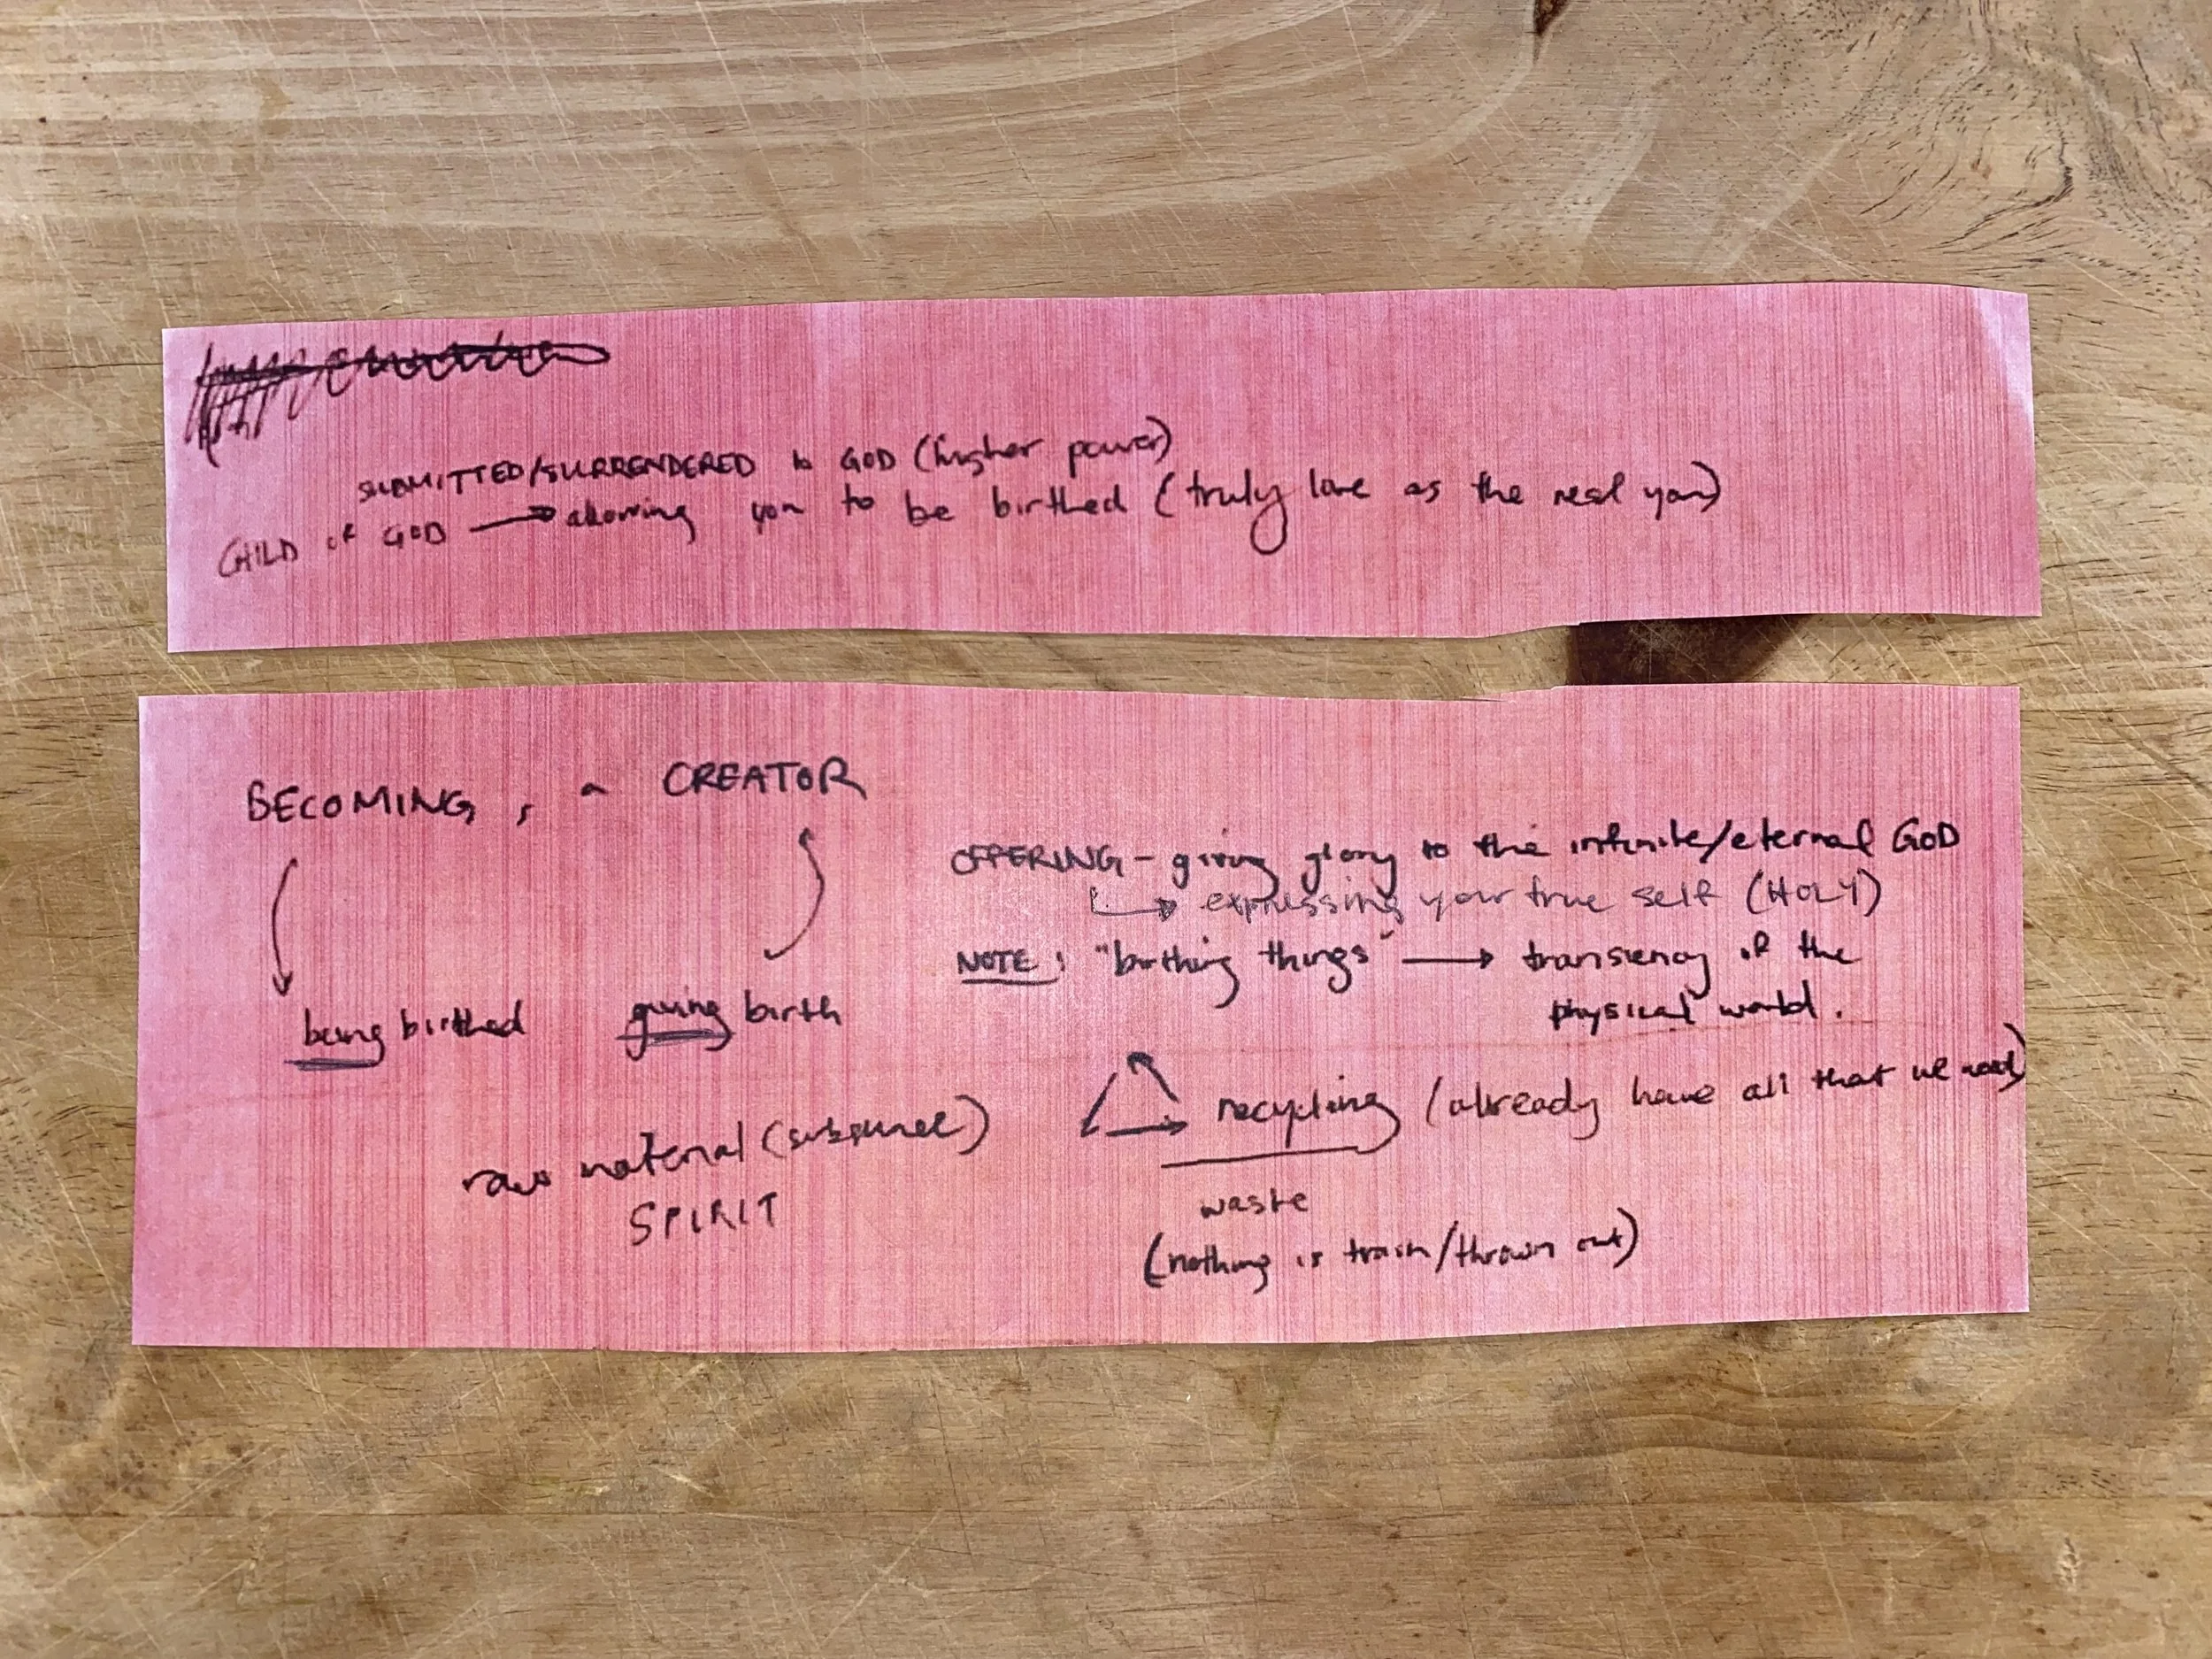 SUBMITTED/SURRENDERED to GOD (higher power)
CHILD OF GOD → allowing you to be birthed (truly love as the real you)
BECOMING, a CREATOR
being birthed giving birth
raw material (substance)
SPIRIT
OFFERING - giving glory to the infinite/eternal GOD
↳ expressing your true self (HOLY)
NOTE: "birthing things" → transiency of the
physical world.
recycling (already have all that we need)
waste
(nothing is trash/thrown out)